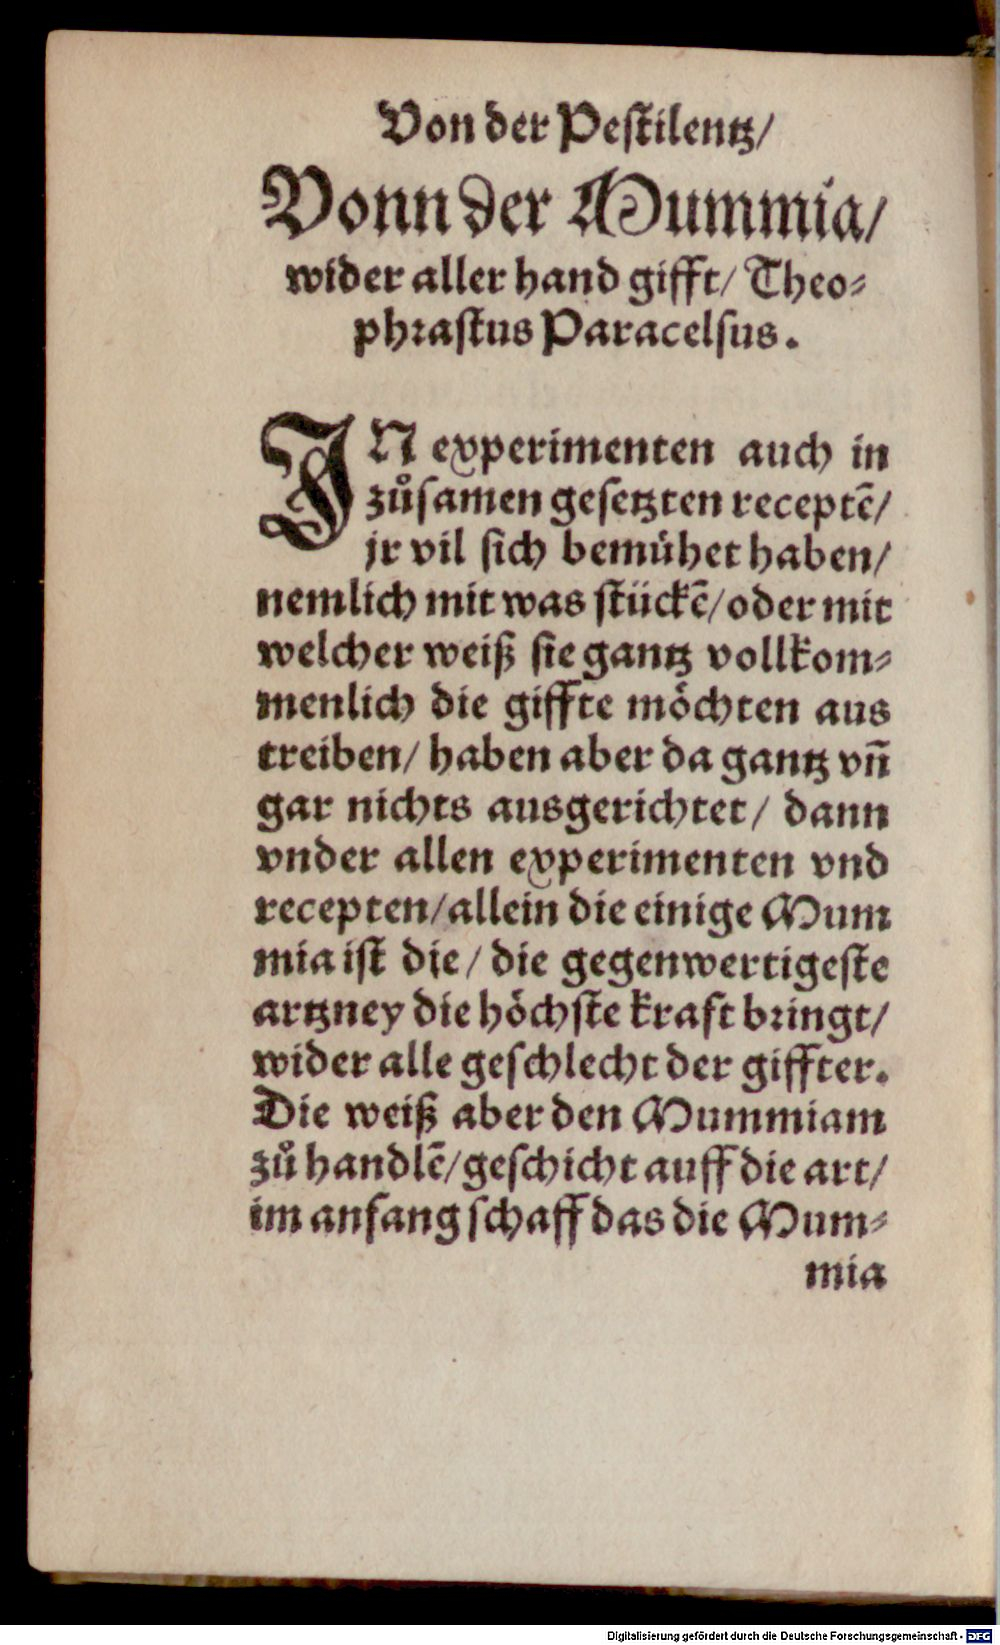 Von der Pestilentz/
Vonn der Mummia/
wider aller hand gifft/ Theo⸗
phrastus Paracelsus.
IN experimenten auch in
zůsamen gesetzten receptē/
jr vil sich bemühet haben/
nemlich mit was stückē/oder mit
welcher weiß sie gantz vollkom⸗
menlich die giffte möchten aus
treiben/ haben aber da gantz vñ
gar nichts ausgerichtet/ dann
vnder allen experimenten vnd
recepten/allein die einige Mum
mia ist die/ die gegenwertigeste
artzney die höchste kraft bringt/
wider alle geschlecht der giffter.
Die weiß aber den Mummiam
zů handlē/geschicht auff die art/
im anfang schaff das die Mum⸗
mia
Digitalisierung gefördert durch die Deutsche Forschungsgemeinschaft - DFG